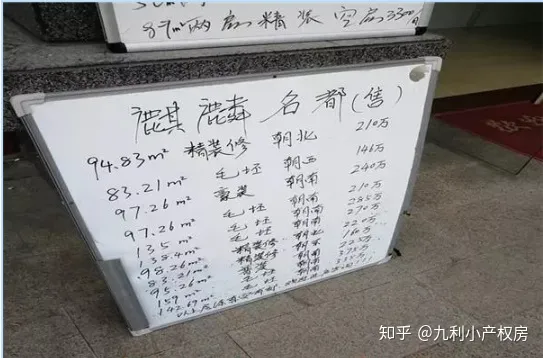 87m²两房精装空房3300/月
麒麟名都(售)
94.83m² 精装修 朝北 210万
83.21m² 毛坯 朝西 146万
97.26m² 豪装 朝南 240万
97.26m² 毛坯 朝南 210万
135m² 毛坯 朝南 285万
138.4m² 朝南 270万
98.26m² 精装修 朝南 220万
83.21m² 精装修 朝北 160万
95.26m² 朝东 225万
159m² 毛坯 朝南 375万
142.69m² 毛坯 朝南
以上房源
知乎 @九利小产权房